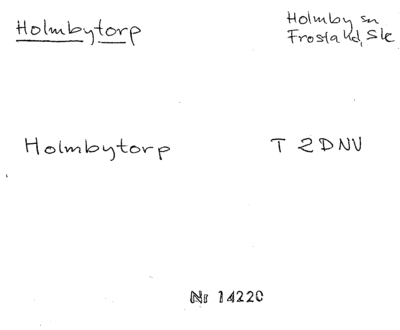 Holmbytorp
Holmby sn
Frosta hd, Sk
Holmbytorp
T 2DNV
Nr 14220